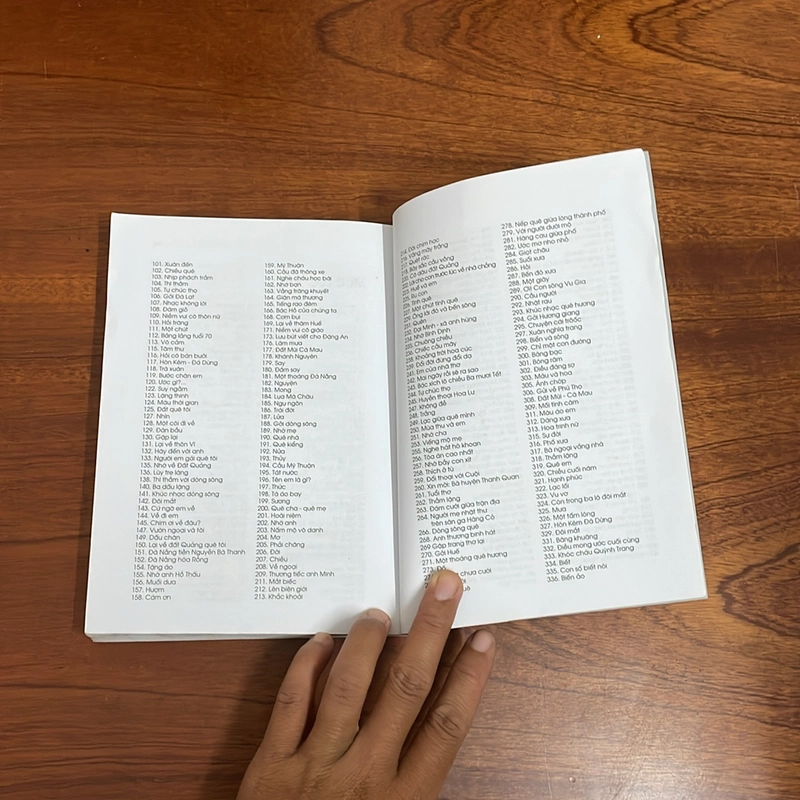 101. Xuân đến
102. Chiều quê
103. Nhịp phách trầm
104. Thì thầm
105. Tự chúc thọ
106. Gởi Đà Lạt
107. Nhạc không lời
108. Đám giỗ
109. Niềm vui có thôn nữ
110. Hội trăng
111. Một chút
112. Bâng lâng tuổi 70
113. Vô cảm
115. Tâm thư
116. Hỏi cô bán bưởi
117. Hòn Kẽm - Đá Dừng
118. Trà xuân
119. Bước chân em
120. Ước gì?...
122. Suy ngẫm
123. Lặng thinh
124. Màu thời gian
125. Đất quê tôi
127. Nhìn
128. Một cõi đi về
129. Đàn bầu
130. Gặp lại
131. Lại về thôn Vĩ
132. Hãy đến với anh
133. Người em gái quê tôi
135. Nhớ về Đất Quảng
136. Lũy tre làng
138. Thì thầm với dòng sông
140. Ba dấu lặng
141. Khúc nhạc dòng sông
142. Đôi mắt
143. Cứ ngỡ em về
144. Về đi em
145. Chim ơi về đâu?
147. Vườn ngoại và tôi
149. Dấu chân
150. Lại về đất Quảng quê tôi
151. Đà Nẵng tiễn Nguyễn Bá Thanh
152. Đà Nẵng hỏa Rồng
154. Tặng áo
155. Nhà anh Hồ Thấu
156. Muối dưa
157. Hươm
158. Cám ơn
159. Mỹ Thuận
160. Cầu đá tháng xe
161. Nghe cháu học bài
162. Nhớ bạn
163. Vầng trăng khuyết
164. Giận mà thương
165. Tiếng rao đêm
166. Bác Hồ của chúng ta
168. Cơm bụi
169. Lại về thăm Huế
171. Niềm vui cô giáo
173. Lưu bút viết cho Đặng An
176. Làm mưa
177. Đất Mũi Cà Mau
178. Khánh Nguyên
179. Say
180. Đắm say
181. Một thoáng Đà Nẵng
182. Nguyện
183. Mong
184. Lụa Mã Châu
185. Ngu ngôn
186. Trái đời
187. Lửa
188. Gởi dòng sông
189. Nhớ mẹ
190. Quê nhà
191. Quê kiểng
192. Nửa
193. Thủy
194. Cầu Mỹ Thuận
195. Tát nước
196. Tên em là gì?
197. Thức
198. Tà áo bay
199. Sương
200. Quê cha - quê mẹ
201. Hoài niệm
202. Nhớ anh
203. Nấm mộ vô danh
204. Mơ
205. Phải chăng
206. Đời
207. Chiều
208. Về ngoại
209. Thương tiếc anh Minh
211. Mắt biếc
212. Lên biên giới
213. Khắc khoải
214. Dài chim hạc
Vầng mây trắng
Quét rác
Bảy sắc cầu vồng
Cô dâu đất Quảng
Lời cho con trước lúc về nhà chồng
Huế và em
Ru con
Tình quê
Một chút tình quê
Ông lời đồ và bến sông
231. Quên
232. Đại Minh - xã anh hùng
234. Nhớ Bình Định
235. Chuông chiều
236. Chiếc cầu mây
238. Khoảng trời hoa cúc
239. Đổi đời đứng đổi dạ
241. Em của nhà thơ
242. Mai ngày rồi sẽ ra sao
243. Bác xích lô chiều Ba mươi Tết
244. Tự chúc thọ
245. Huyền thoại Hoa Lư
247. Không đề
248. Trăng
249. Lạc giữa quê mình
250. Mùa thu và em
251. Nhà cha
253. Viếng mộ mẹ
255. Nghe hát hò khoan
256. Tòa án cao nhất
257. Nhà bảy con xít
258. Thích ở tù
259. Đối thoại với Cuội
260. Xin mời Bà huyện Thanh Quan
261. Tuổi thơ
262. Thầm lặng
263. Đám cưới giữa trận địa
264. Người mẹ nhặt thư
trên sân ga Hàng Cỏ
266. Dòng sông quê
268. Anh thương binh hát
269 Gặp trang thơ lại
270. Gái Huế
271. Một thoáng quê hương
273. Đồ
chưa cưới
278. Nếp quê giữa lòng thành phố
279. Với người dưới mộ
281. Hàng cau giữa phố
282. Ước mơ nho nhỏ
284. Giọt châu
285. Suối xưa
286. Hỏi
287. Bến đò xưa
288. Một giây
289. Ơi! Con sông Vu Gia
290. Cầu người
292. Nhặt rau
293. Khúc nhạc quê hương
294. Gởi Hương giang
295. Chuyện cái trôốc
297. Xuân nghĩa trang
298. Biển và sông
299. Chỉ một con đường
300. Bàng bạc
301. Bóng râm
302. Điều đáng sợ
303. Màu và hoa
305. Ánh chớp
306. Gửi về Phú Thọ
308. Đất Mũi - Cà Mau
309. Mối tình câm
311. Màu áo em
312. Dáng xưa
313. Hoa trinh nữ
315. Sự đời
316. Phố xưa
317. Bà ngoại vắng nhà
318. Thầm lặng
319. Quê em
320. Chiều cuối năm
321. Hạnh phúc
322. Lạc lối
323. Vu vơ
324. Còn trong ba lô đôi mắt
325. Mưa
326. Một tấm lòng
327. Hòn Kẽm Đá Dừng
329. Đôi mắt
331. Bâng khuâng
332. Điều mong ước cuối cùng
333. Khóc cháu Quỳnh Trang
334. Biết
335. Con số biết nói
336. Biển ảo